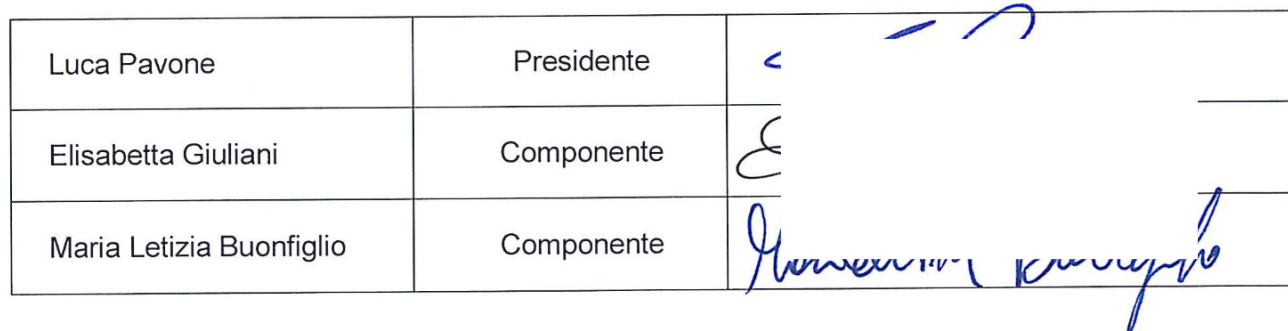 Luca Pavone Presidente
Elisabetta Giuliani Componente
Maria Letizia Buonfiglio Componente